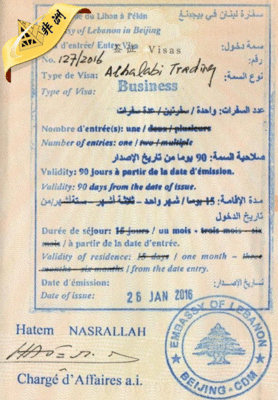 非洲
سفارة لبنان في بيجينغ
du Liban à Pékin
of Lebanon in Beijing
سمة دخول:
d'entrée/ Entry Visa
Visas
رقم:
No. 127/2016
Type de Visa: Alhalabi Trading
نوع السمة:
Type of Visa: Business
عدد السفرات: واحدة / سفرتين / عدة سفرات
Nombre d'entrée(s): une / deux / plusieurs
Number of entries: one / two / multiple
صلاحية السمة: 90 يوما من تاريخ الإصدار
Validity: 90 jours à partir de la date d'émission.
Validity: 90 days from the date of issue.
مدة الإقامة: 15 يوما / شهر واحد - ثلاثة أشهر - ستة أشهر / من
تاريخ الدخول
Durée de séjour: 15 jours / un mois - trois mois - six
mois / à partir de la date d'entrée.
Validity of residence: 15 days / one month - three
months - six months / from the date entry.
Date d'émission:
تاريخ الإصدار:
Date of issue: 26 JAN 2016
Hatem NASRALLAH
Chargé d'Affaires a.i.
EMBASSY OF LEBANON
BEIJING-CDM